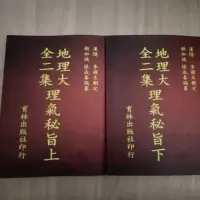 地理大
全二集
理氣秘旨下
育林出版社印行
地理大
全二集
理氣秘旨上
育林出版社印行